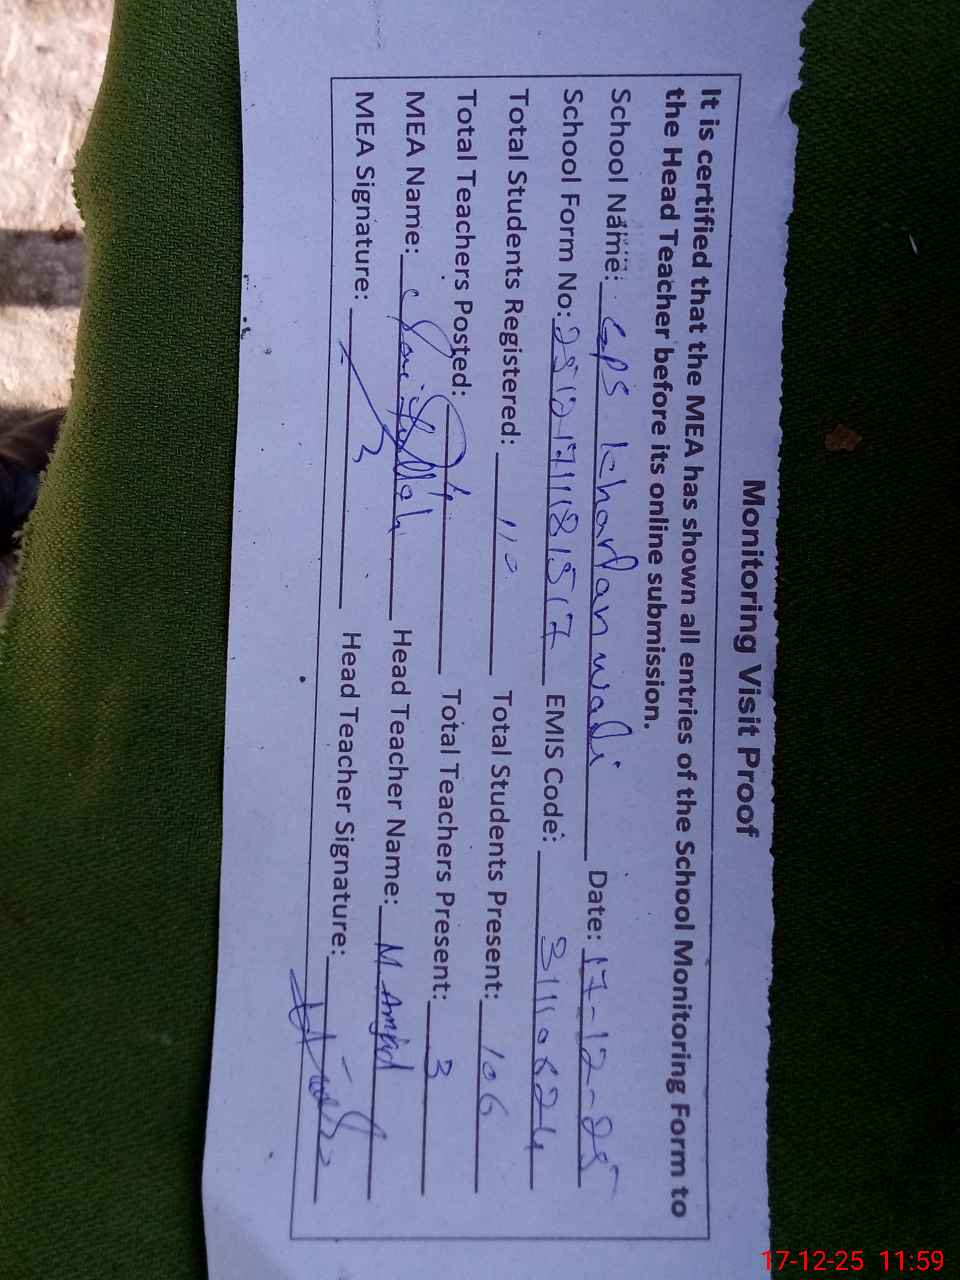 Monitoring Visit Proof
It is certified that the MEA has shown all entries of the School Monitoring Form to
the Head Teacher before its online submission.
School Name: GPS Kharfan wadi Date: 17-12-25
School Form No: 25121711181517 EMIS Code: 31110624
Total Students Registered: 110 Total Students Present: 106
Total Teachers Posted: 4 Total Teachers Present: 3
MEA Name: Head Teacher Name: M Amjad
MEA Signature: Head Teacher Signature:
17-12-25 11:59